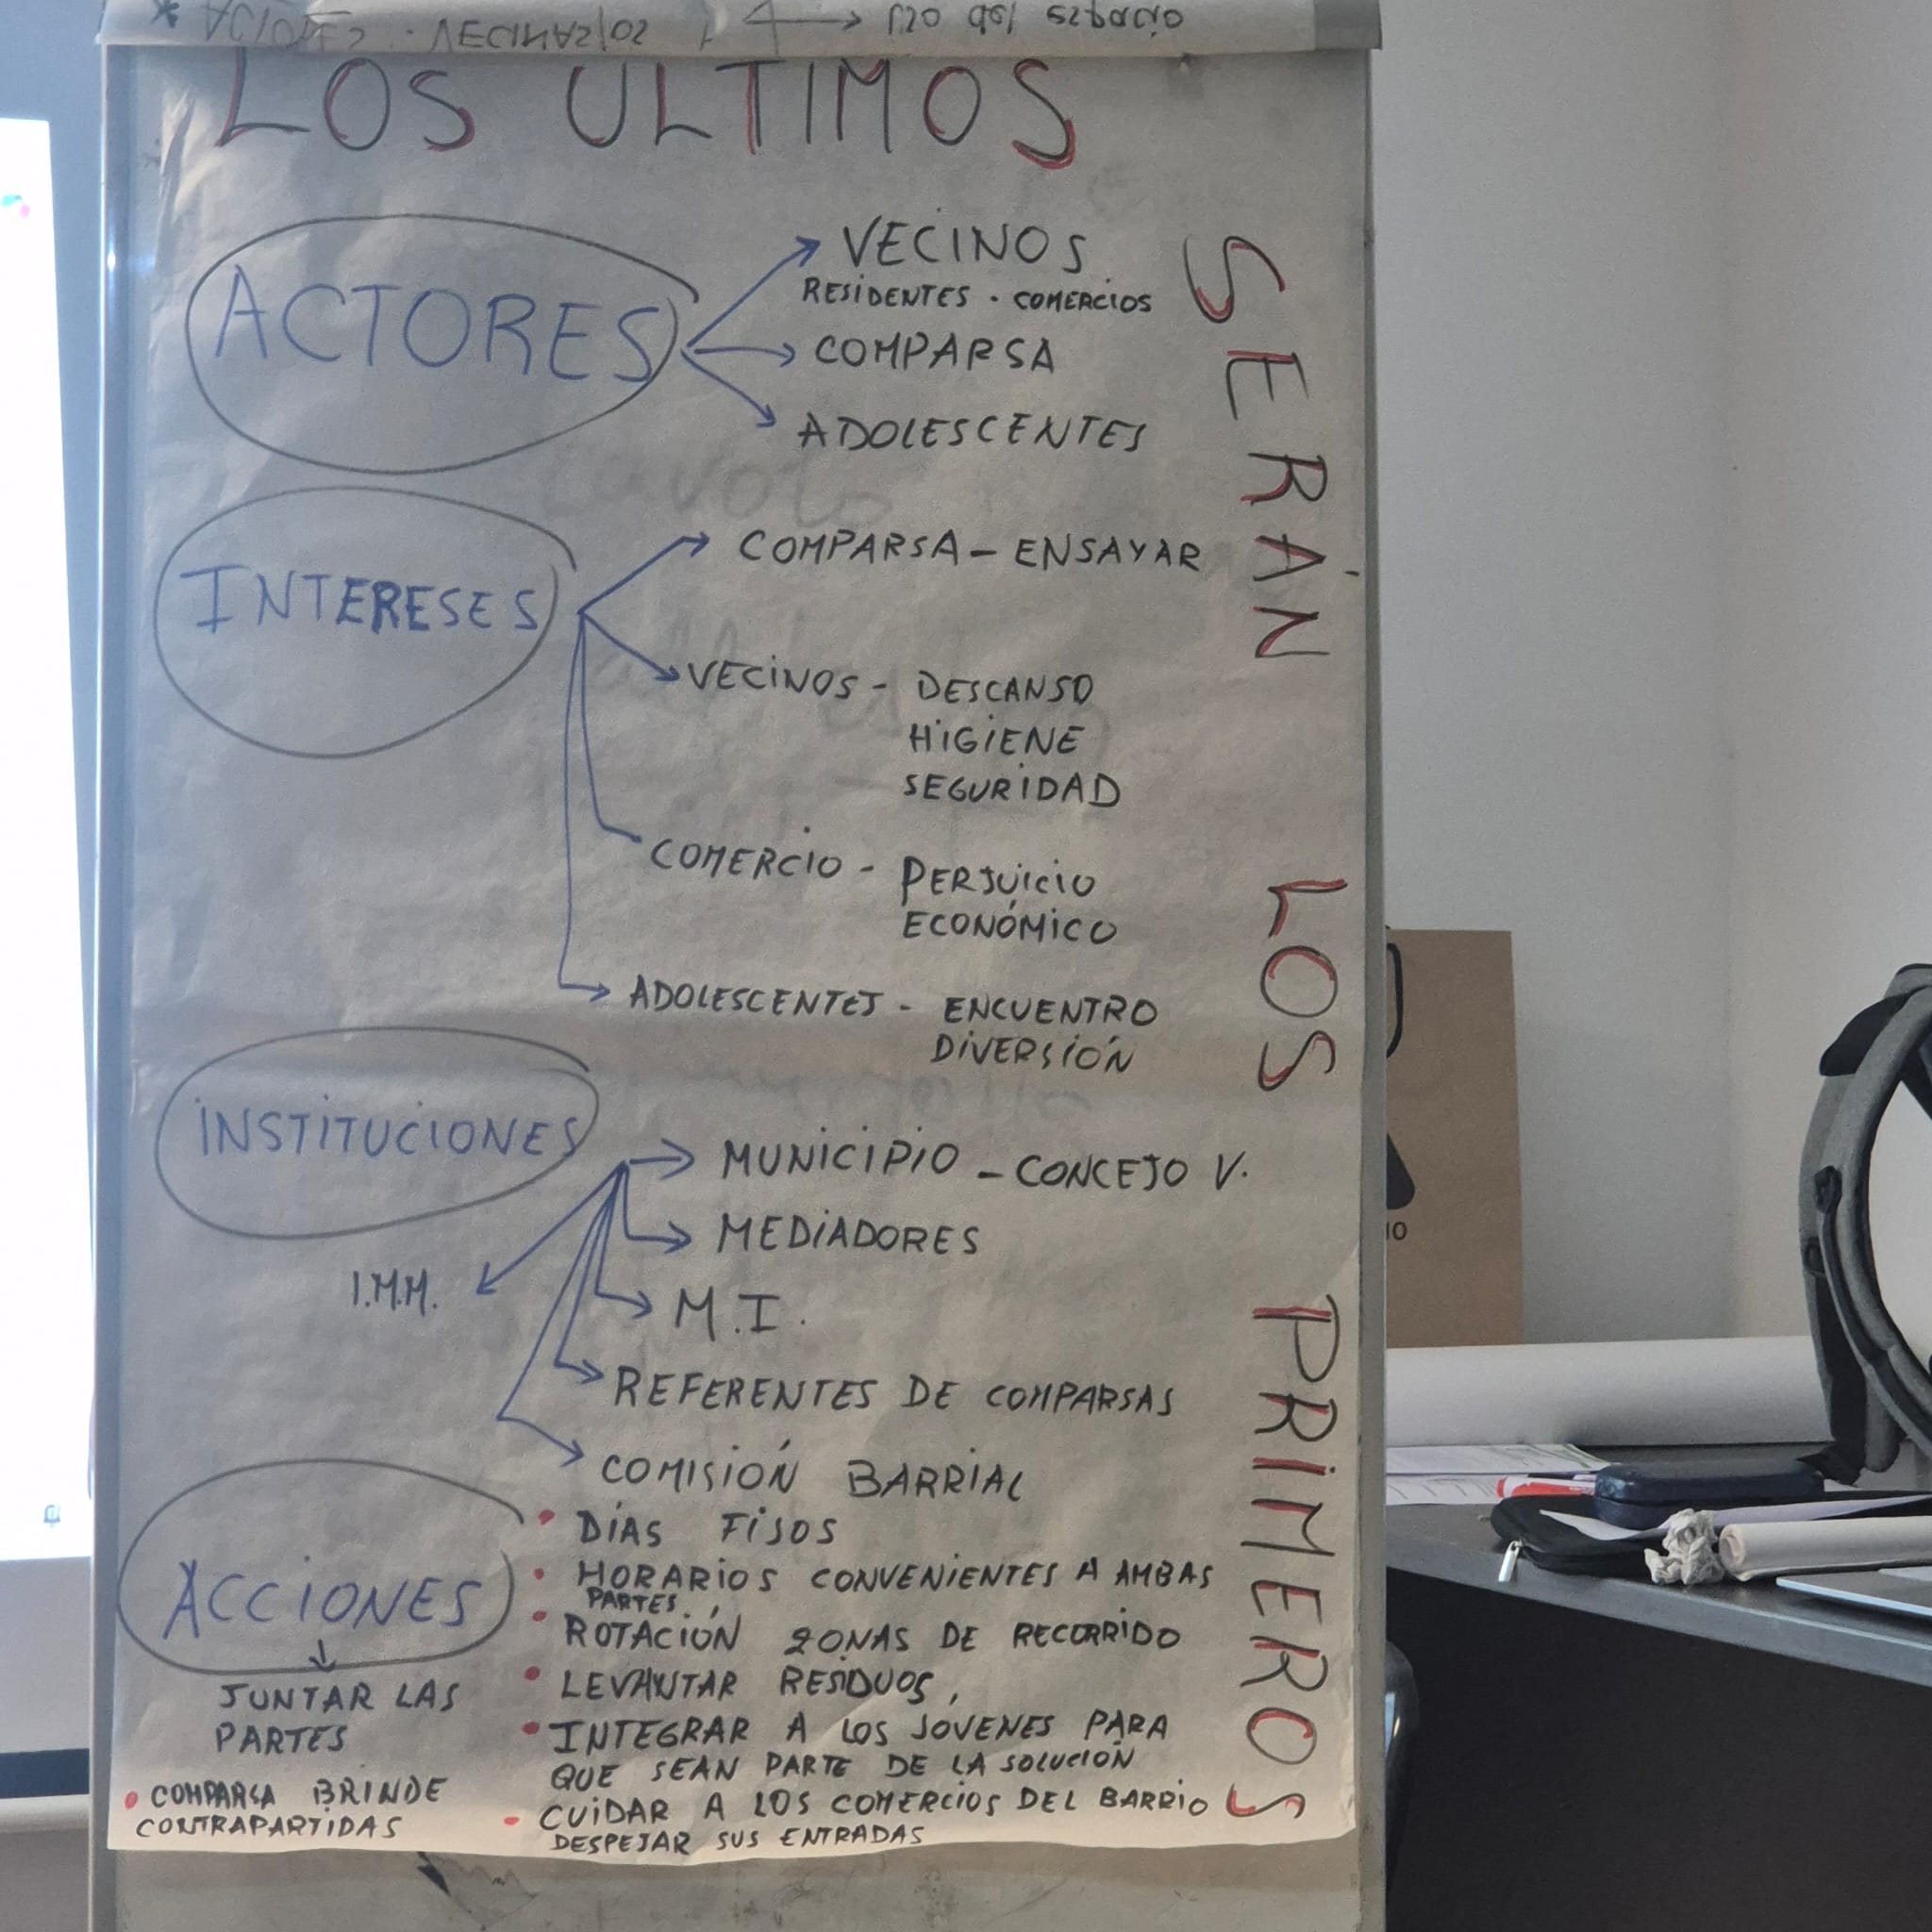 * ACTORES · VECINAS/OS
uso del espacio
LOS ULTIMOS
SERÁN LOS PRIMEROS
ACTORES
VECINOS
RESIDENTES · COMERCIOS
COMPARSA
ADOLESCENTES
INTERESES
COMPARSA - ENSAYAR
VECINOS - DESCANSO
HIGIENE
SEGURIDAD
COMERCIO - PERJUICIO
ECONÓMICO
ADOLESCENTES - ENCUENTRO
DIVERSIÓN
INSTITUCIONES
MUNICIPIO - CONCEJO V.
MEDIADORES
I.M.M.
M.I.
REFERENTES DE COMPARSAS
COMISIÓN BARRIAL
ACCIONES
JUNTAR LAS
PARTES
• COMPARSA BRINDE
CONTRAPARTIDAS
• DÍAS FIJOS
• HORARIOS CONVENIENTES A AMBAS
PARTES.
• ROTACIÓN ZONAS DE RECORRIDO
• LEVANTAR RESIDUOS,
• INTEGRAR A LOS JOVENES PARA
QUE SEAN PARTE DE LA SOLUCIÓN
• CUIDAR A LOS COMERCIOS DEL BARRIO
DESPEJAR SUS ENTRADAS